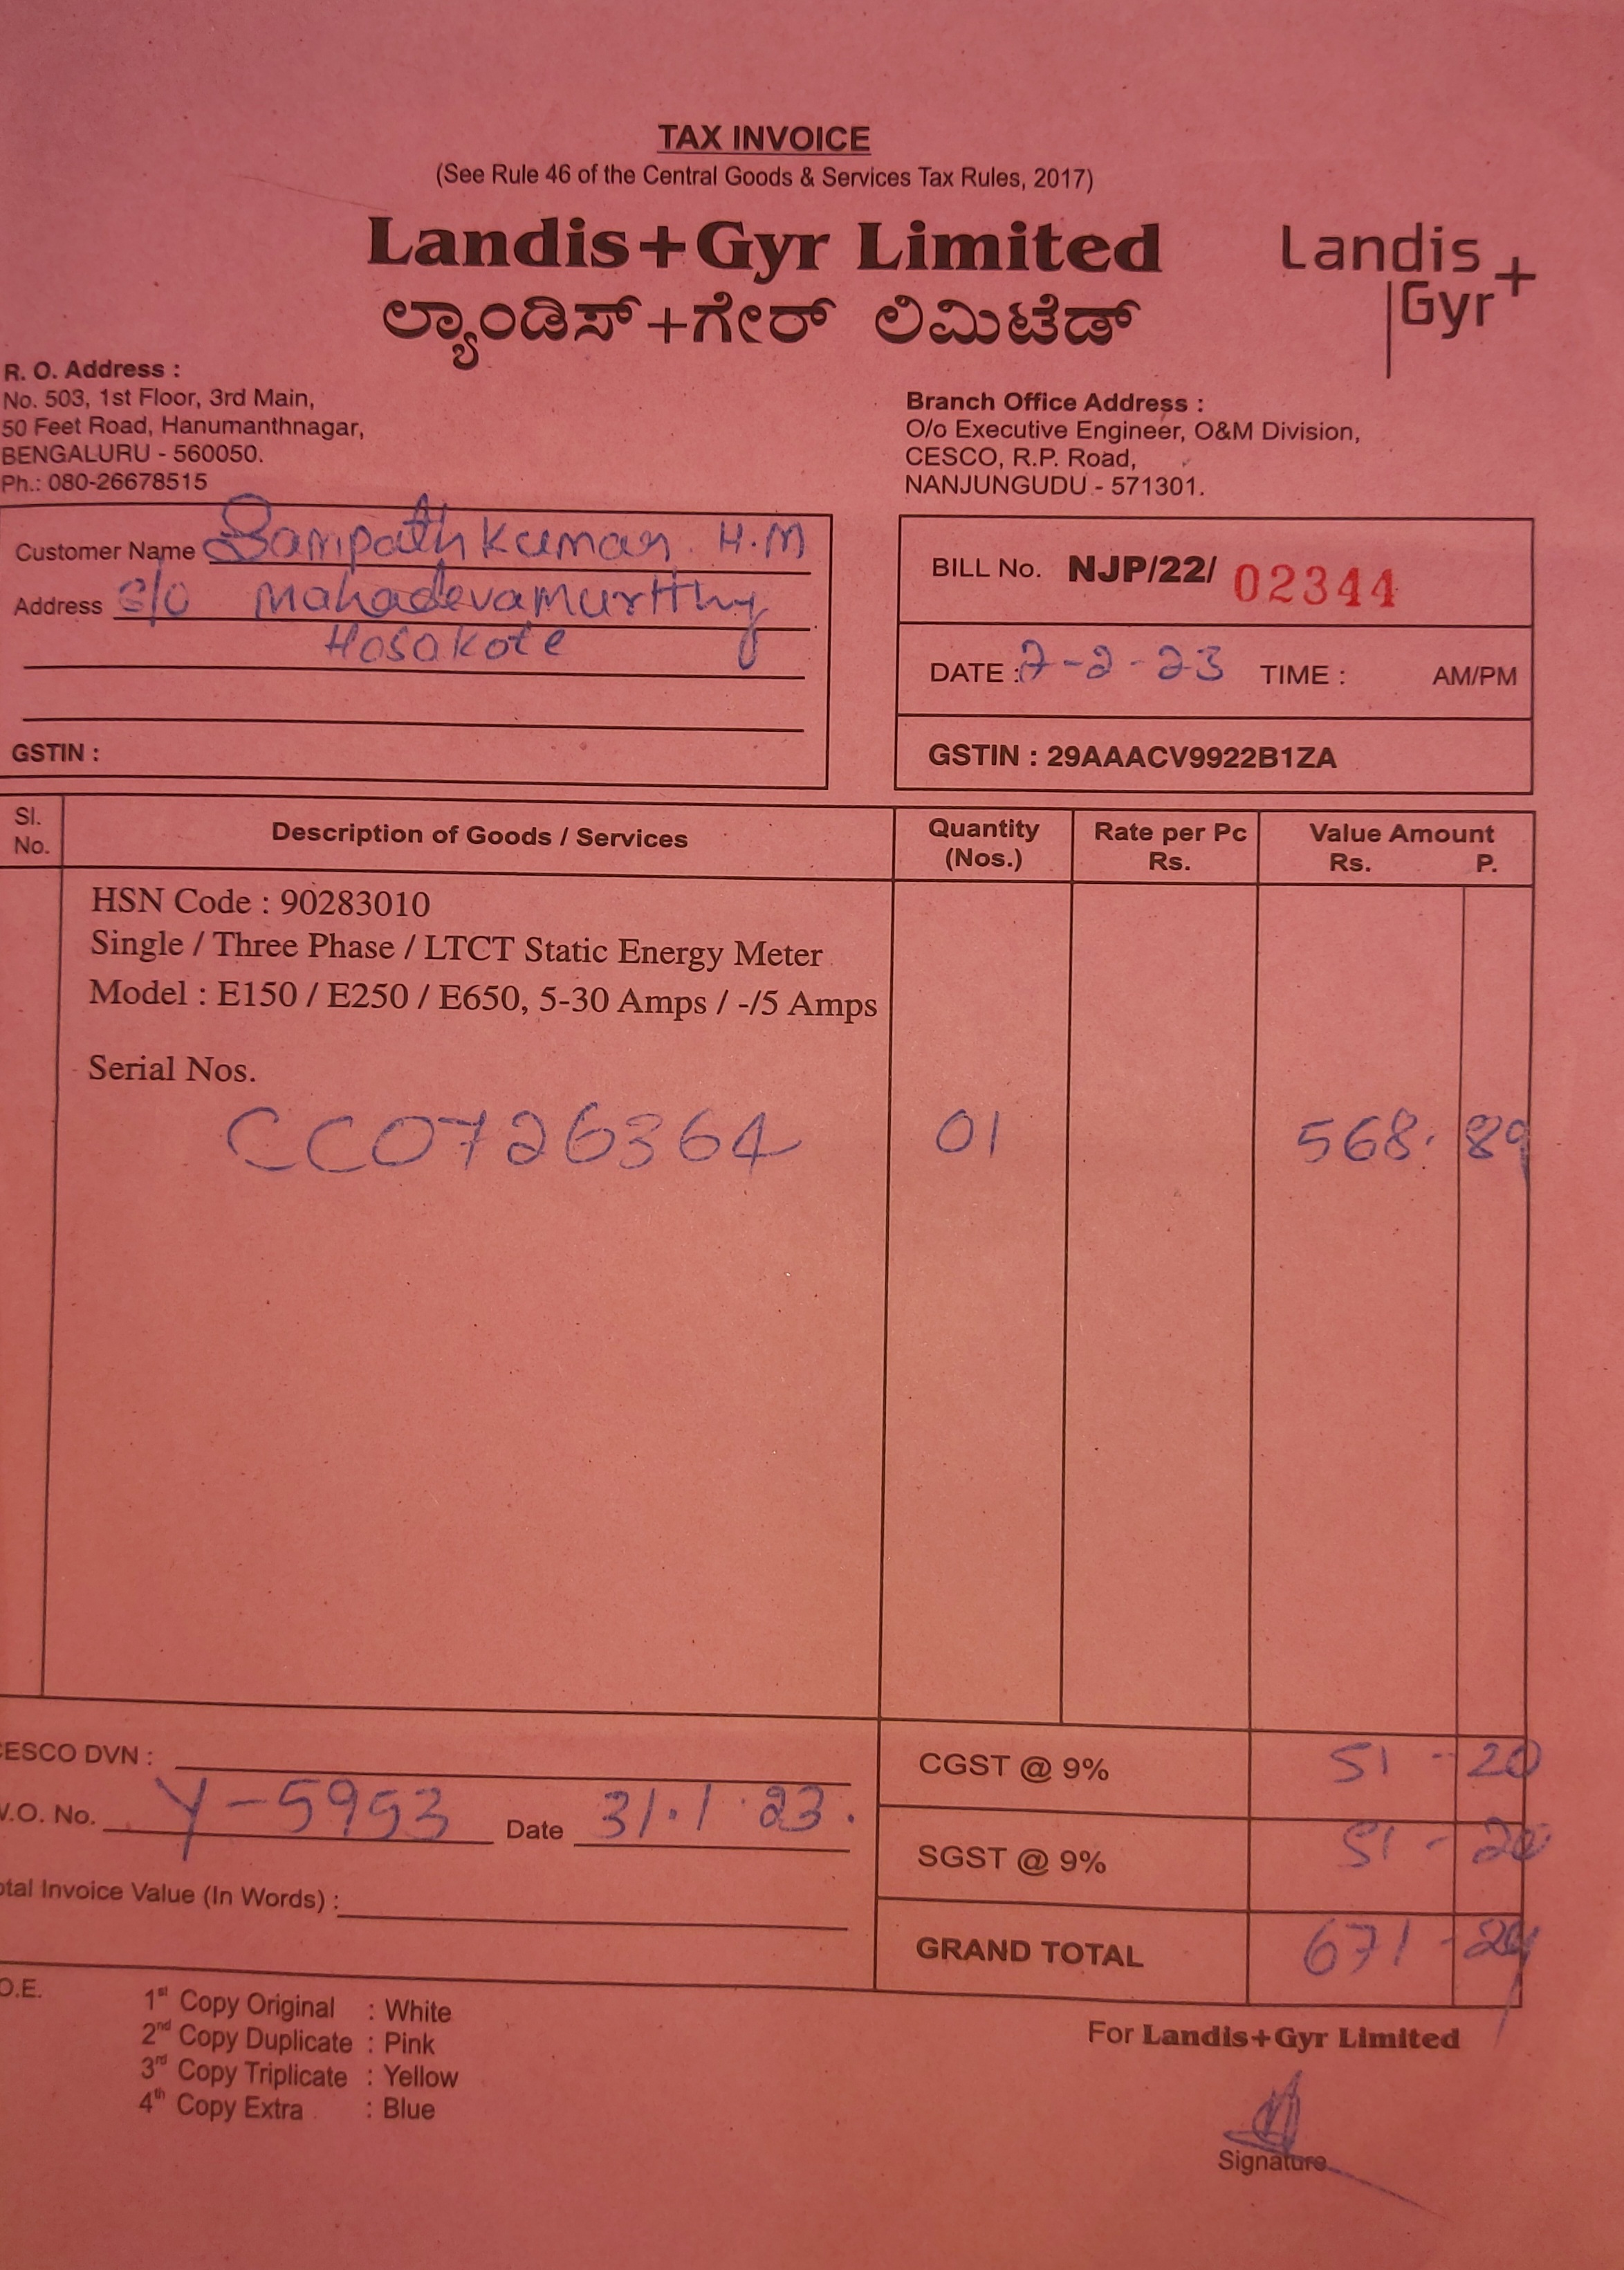 TAX INVOICE
(See Rule 46 of the Central Goods & Services Tax Rules, 2017)
Landis+Gyr Limited
ಲ್ಯಾಂಡಿಸ್+ಗೇರ್ ಲಿಮಿಟೆಡ್
Landis
Gyr+
R. O. Address :
No. 503, 1st Floor, 3rd Main,
50 Feet Road, Hanumanthnagar,
BENGALURU - 560050.
Ph.: 080-26678515
Branch Office Address :
O/o Executive Engineer, O&M Division,
CESCO, R.P. Road,
NANJUNGUDU - 571301.
Customer Name Sampath Kumar. H.M
Address S/o Mahadevamurthy
Hosakote
GSTIN :
BILL No. NJP/22/ 02344
DATE : 7-2-23 TIME : AM/PM
GSTIN : 29AAACV9922B1ZA
Sl. No. Description of Goods / Services Quantity (Nos.) Rate per Pc Rs. Value Amount Rs. P.
HSN Code : 90283010
Single / Three Phase / LTCT Static Energy Meter
Model : E150 / E250 / E650, 5-30 Amps / -/5 Amps
Serial Nos.
CC0726364 01 568. 89
ESCO DVN :
.O. No. Y-5953 Date 31.1.23.
otal Invoice Value (In Words) :
CGST @ 9% 51 - 20
SGST @ 9% 51 - 20
GRAND TOTAL 671 - 29
O.E.
1st Copy Original : White
2nd Copy Duplicate : Pink
3rd Copy Triplicate : Yellow
4th Copy Extra : Blue
For Landis+Gyr Limited
Signature